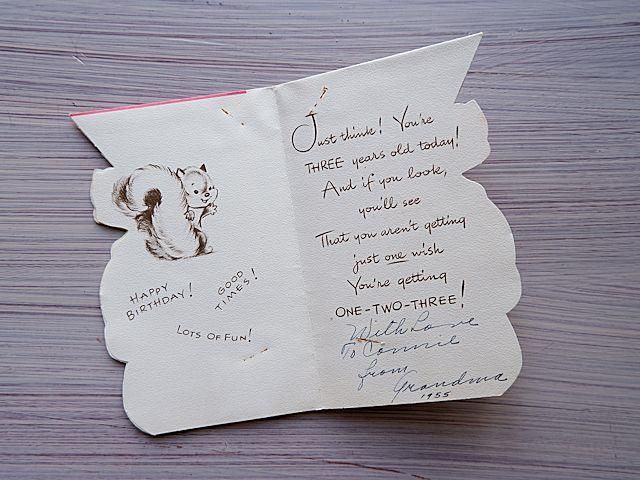 HAPPY
BIRTHDAY!
GOOD
TIMES!
LOTS OF FUN!
Just think! You're
THREE years old today!
And if you look,
you'll see
That you aren't getting
just one wish
You're getting
ONE-TWO-THREE!
With Love
To Connie
from
Grandma
1955